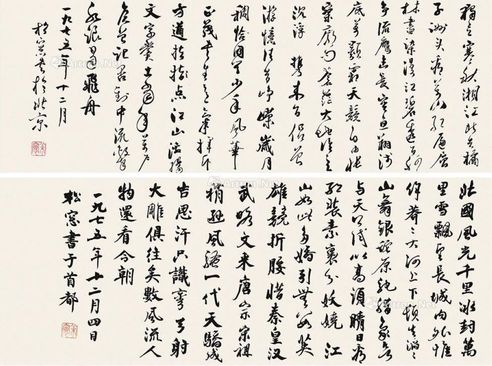 獨立寒秋湘江北去橘
子洲头看萬山红遍层
林盡染漫江碧透百舸
争流鹰击長空魚翔浅
底萬類霜天競自由怅
寥廓问苍茫大地谁主
沉浮 携来百侣曾
游憶往昔峥嵘歲月
稠恰同学少年風華
正茂书生意气揮斥
方遒指点江山激揚
文字糞土當年萬户
侯曾记否到中流击
水浪遏飛舟
一九七五年十二月
松窓书於北京
北國風光千里冰封萬
里雪飄望長城内外惟
馀莽々大河上下顿失滔々
山舞銀蛇原驰蜡象欲
与天公试比高须晴日看
红装素裹分外妖娆 江
山如此多嬌引無數英
雄競折腰惜秦皇汉
武略文采唐宗宋祖
稍逊風騷一代天驕成
吉思汗只識彎弓射
大雕俱往矣數風流人
物還看今朝
一九七五年十二月四日
松窓書于首都